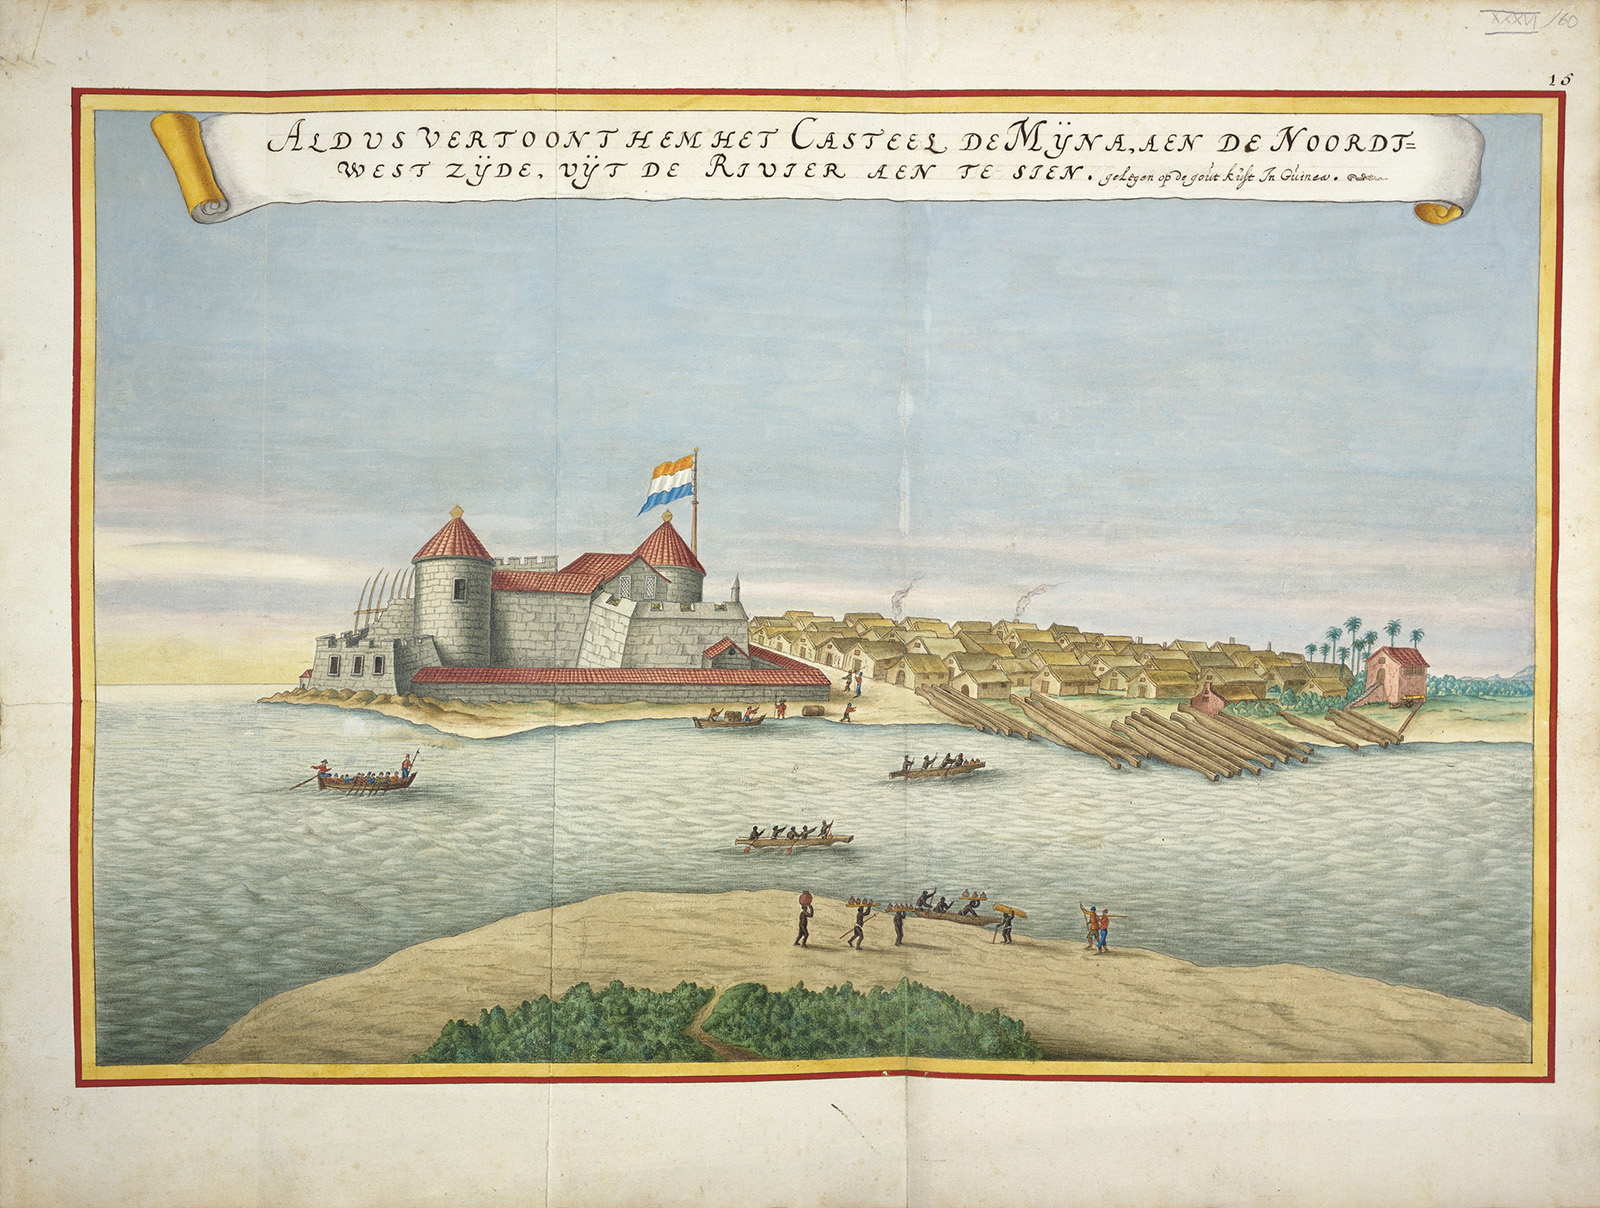 XXXVI /60
15
ALDUS VERTOONT HEM HET CASTEEL DE MŸNA, AEN DE NOORDT=
WEST ZŸDE, VŸT DE RIVIER AEN TE SIEN. gelegen op de gout kust In Guinea.